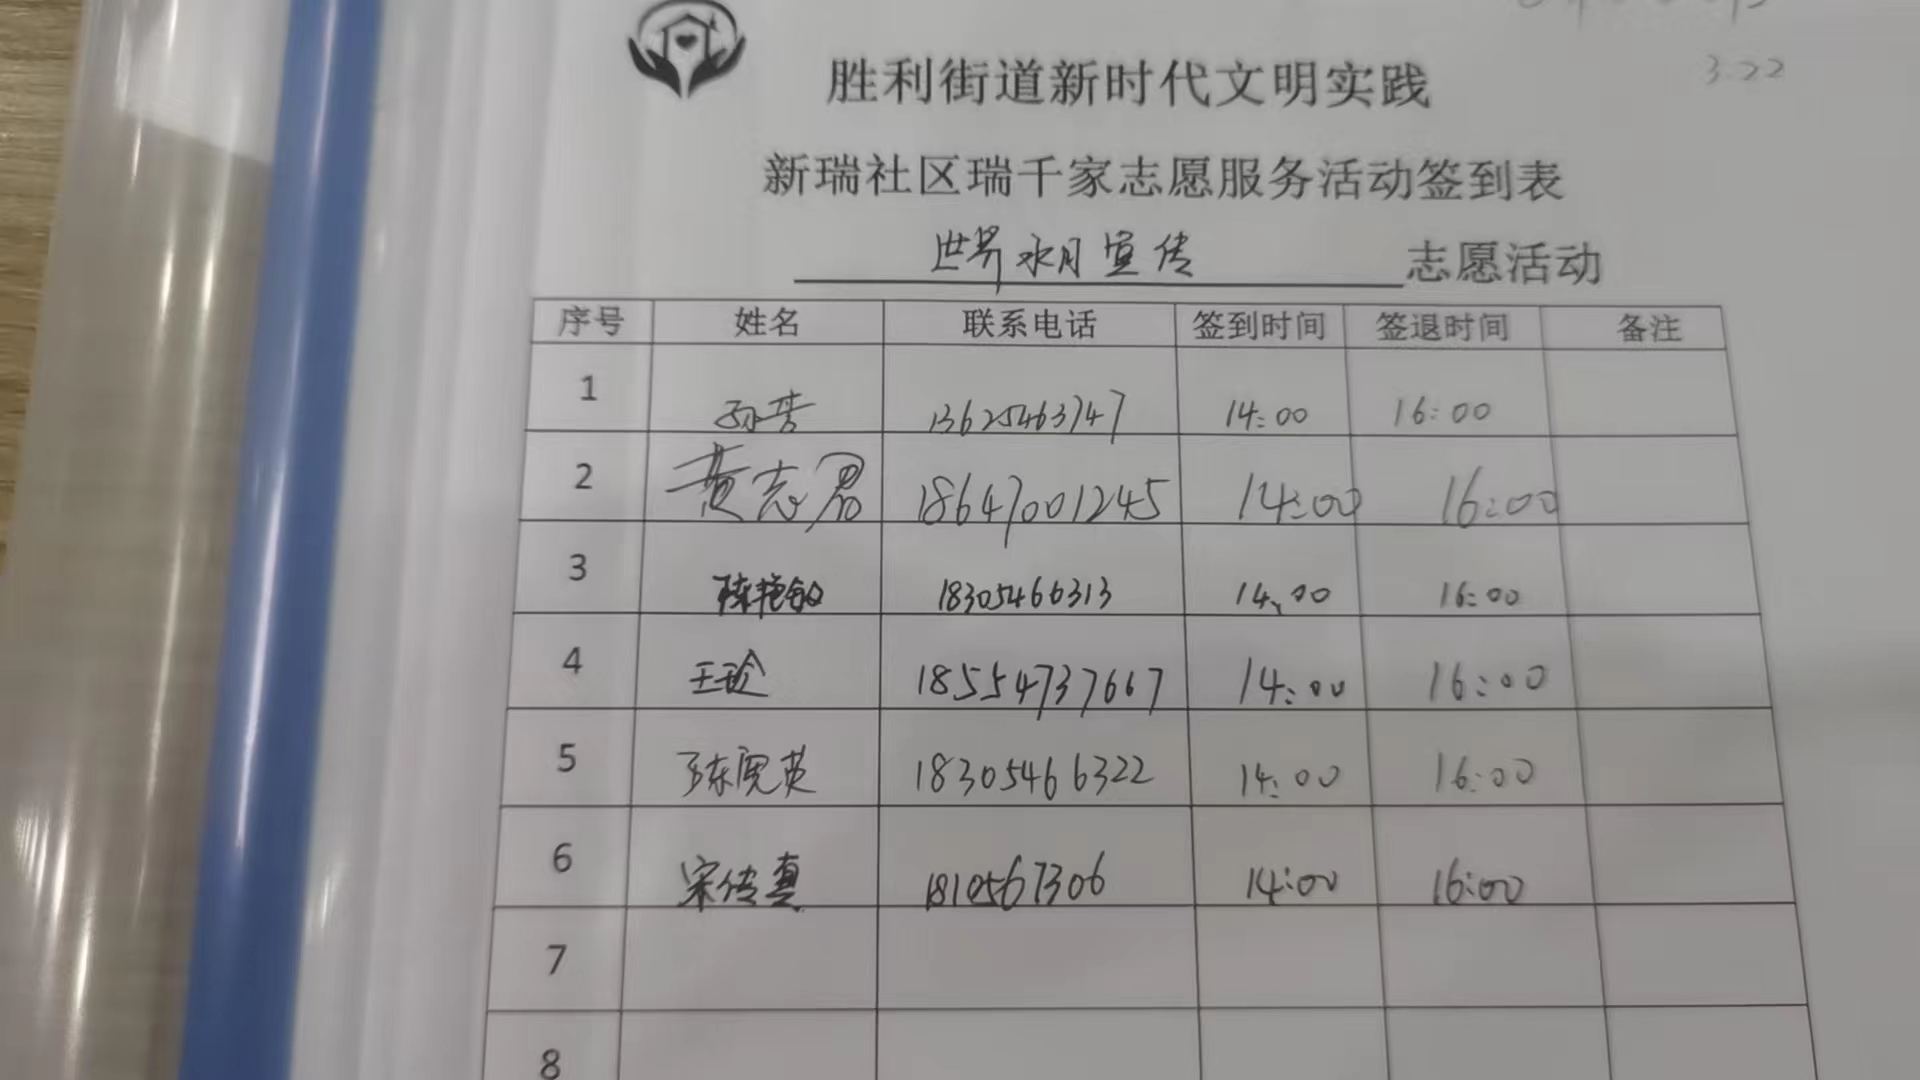 3.22
胜利街道新时代文明实践
新瑞社区瑞千家志愿服务活动签到表
世界水日宣传 志愿活动
序号 姓名 联系电话 签到时间 签退时间 备注
1 孙芳 13625463747 14:00 16:00
2 黄志君 18647001245 14:00 16:00
3 陈艳敏 18305466313 14:00 16:00
4 王玲 18554737667 14:00 16:00
5 陈宽英 18305466322 14:00 16:00
6 宋传真 1810567306 14:00 16:00
7
8